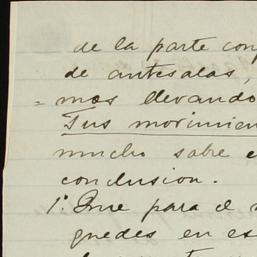 de la parte con
de antesalas,
= mos llevando
Tus movimien
mucho sobre e
conclusion.
1°. Que para el
quedes en es